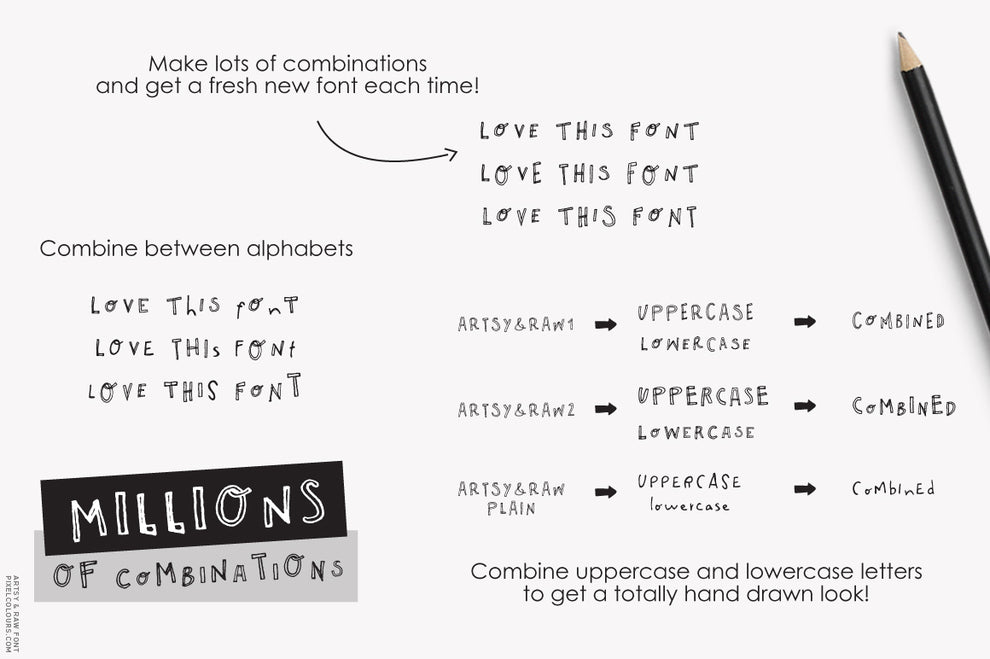 Make lots of combinations
and get a fresh new font each time!
LOVE THIS FONT
LOVE THIS FONT
LOVE THIS FONT
Combine between alphabets
LOVE ThIS fonT
LOVE THIs FONt
LOVE THIS FoNT
ARTSY&RAW1
UPPERCASE
LOWERCASE
COMBINED
ARTSY&RAW2
UPPERCASE
LOWERCASE
CoMBINED
ARTSY&RAW
PLAIN
UPPERCASE
lowercase
CoMbInEd
MILLIONS
OF COMBINATIONS
Combine uppercase and lowercase letters
to get a totally hand drawn look!
ARTSY & RAW FONT
PIXELCOLOURS.COM